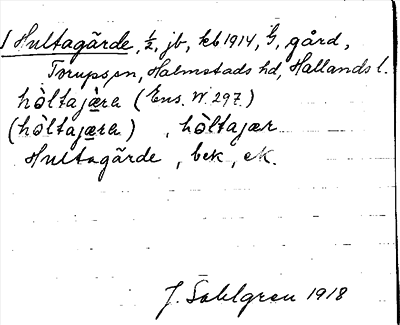 Hultagärde, ½, jb, kb 1914, G, gård,
Torups sn, Halmstads hd, Hallands l.
hòltajæ̀ra (Ens. W. 297.)
(hòltajæra) , hòltajær
Hultagärde, bek, ek.
J. Sahlgren 1918